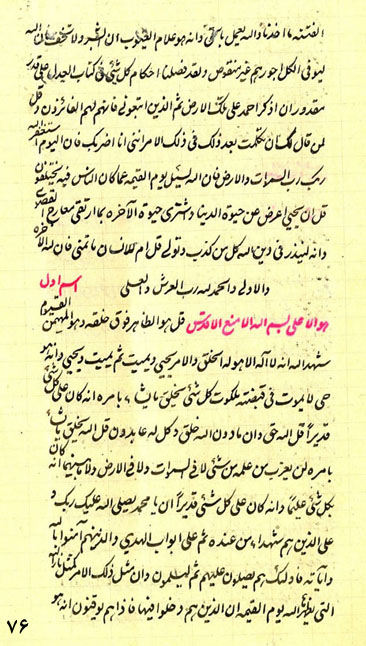 الفتنه ما اخذنا والله يعمل بالحق وانه هو علام الغيوب ان اصبر ولا تخف فان الله
ليوفى الكل اجورهم غير منقوص ولقد فصلنا احكام كل شئ فى كتاب العدل على قدر
مقدور ان اذكر احمد على تلك الارض ثم الذين اتبعونى فانهم لهم الفائزون وقل
لمن قال كيف تكلمت بعد ذلك فى ذلك الامر اننى انا اصبر بك فان اليوم
ربك رب السموات والارض فان الله ليسئل يوم القيمه عما كان الناس فيه يختلفون
قل ان يحيى اعرض عن حيوة الدنيا واشترى حيوة الآخره بما ارتقى معارج القصوى
وانه لينذر فى دين الله كل من كذب وتولى قل ام للانسان ما تمنى فان لله الآخره
والاولى والحمد لله رب العرش والعلى اسم اول
هو الاعلى بسم الله الامنع الاقدس قل هو الظاهر فوق خلقه وهو المهيمن القيوم
شهد الله انه لا اله الا هو له الخلق والامر يحيى ويميت ثم يميت ويحيى وانه هو
حى لا يموت فى قبضته ملكوت كل شئ يخلق ما يشاء بامره انه كان على كل شئ
قديرا قل الله حق وان ما دون الله خلق وكل له عابدون قل الله يخلق ما يشاء
بامره لن يعزب من علمه من شئ لا فى السموات ولا فى الارض ولا ما بينهما انه كان
بكل شئ عليما وانه كان على كل شئ قديرا ان يا محمد يصلى الله عليك ربك و
على الذين هم شهداء من عنده ثم على ابواب الهدى والذينهم آمنوا بالله
وآياته فاولئك هم يصلون عليهم ثم ليسلمون وان مثل ذلك الامر كمثل نار الله
التى يظهر الله يوم القيمه ان الذين هم دخلوا فيها فاذا هم يوقنون انه هو
٧۶